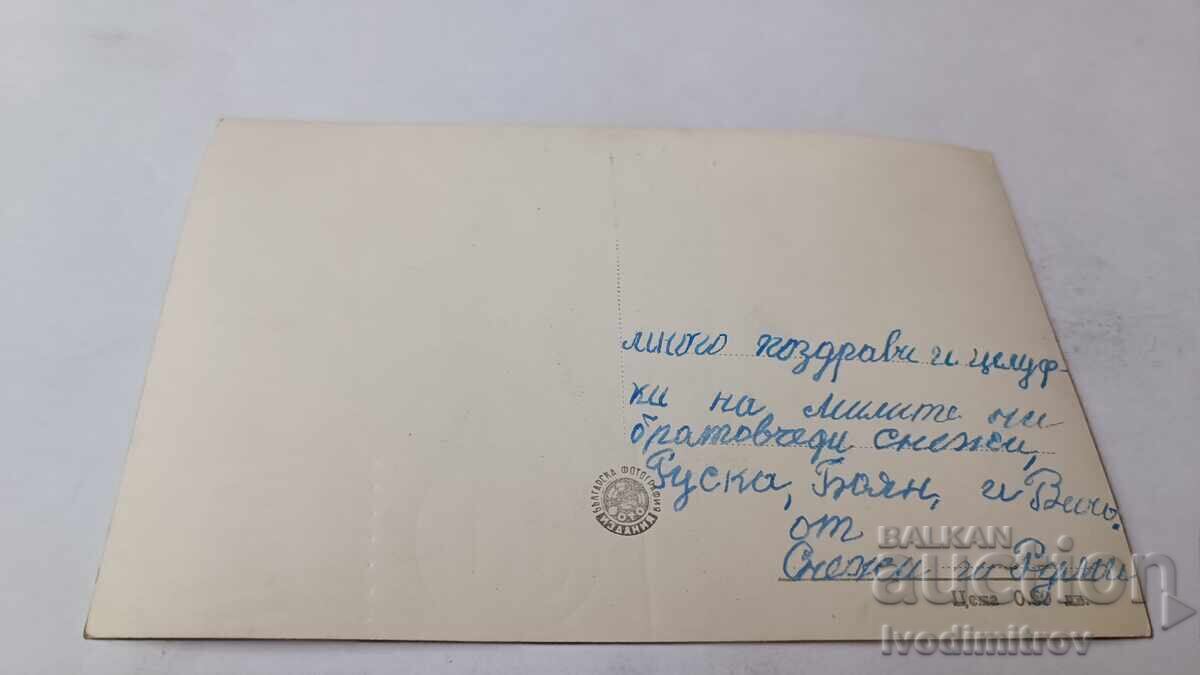 много поздрави и целув-
ки на милите ни
братовчеди Снежи,
Руска, Боян, и Вело.
от
Снежи и Руми
БЪЛГАРСКА ФОТОГРАФИЯ
ФОТО
ИЗДАНИЯ
Цена 0.80 лв.
BALKAN
auction
Ivodimitrov